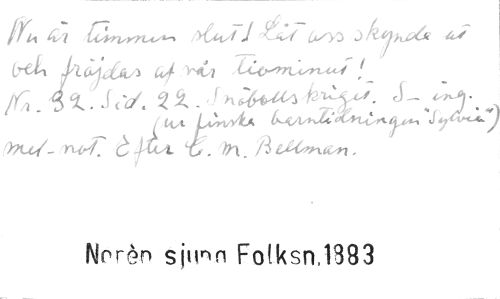 Nu är timmen slut! Låt oss skynda ut
och fröjdas af vår tiominut!
Nr. 32. Sid. 22. Snöbollskriget. S– ing.
(ur finska barntidningen "Sylvia")
mel-not. Efter C. M. Bellman.
Norèn sjung Folksn. 1883